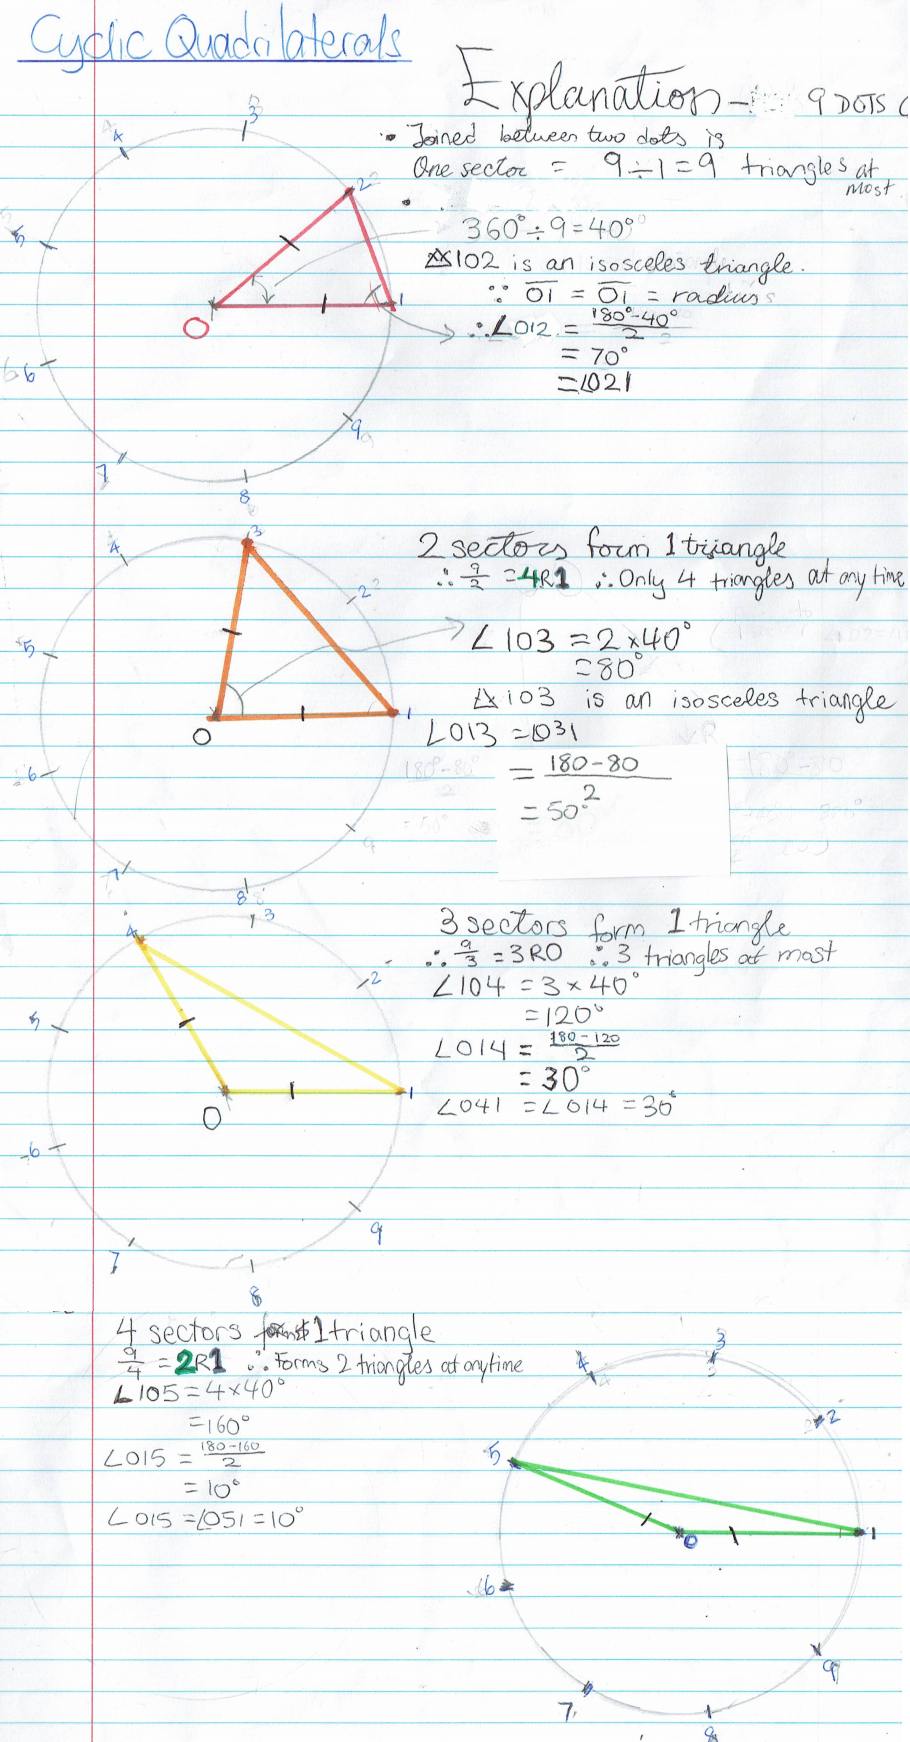 Cyclic Quadrilaterals
Explanation - 9 DOTS
• Joined between two dots is
One sector = 9÷1=9 triangles at most.
•
360°÷9=40°
△102 is an isosceles triangle.
∵ O1 = O1 = radius
∴∠012 = 180°-40° / 2
= 70°
=∠021
3
4
2
5
1
O
6
9
7
8
2 sectors form 1 triangle
∴ 9/2 = 4R1 ∴ Only 4 triangles at any time
∠103 = 2×40°
=80°
△103 is an isosceles triangle
∠013 =∠031
= 180-80 / 2
= 50°
3
4
2
5
1
O
6
9
7
8
3 sectors form 1 triangle
∴ 9/3 = 3R0 ∴ 3 triangles at most
∠104 = 3×40°
=120°
∠014 = 180-120 / 2
= 30°
∠041 = ∠014 = 30°
3
4
2
5
1
O
6
9
7
8
4 sectors forms 1 triangle
9/4 = 2R1 ∴ Forms 2 triangles at anytime
∠105 = 4×40°
=160°
∠015 = 180-160 / 2
= 10°
∠015 =∠051 = 10°
3
4
2
5
1
O
6
9
7
8